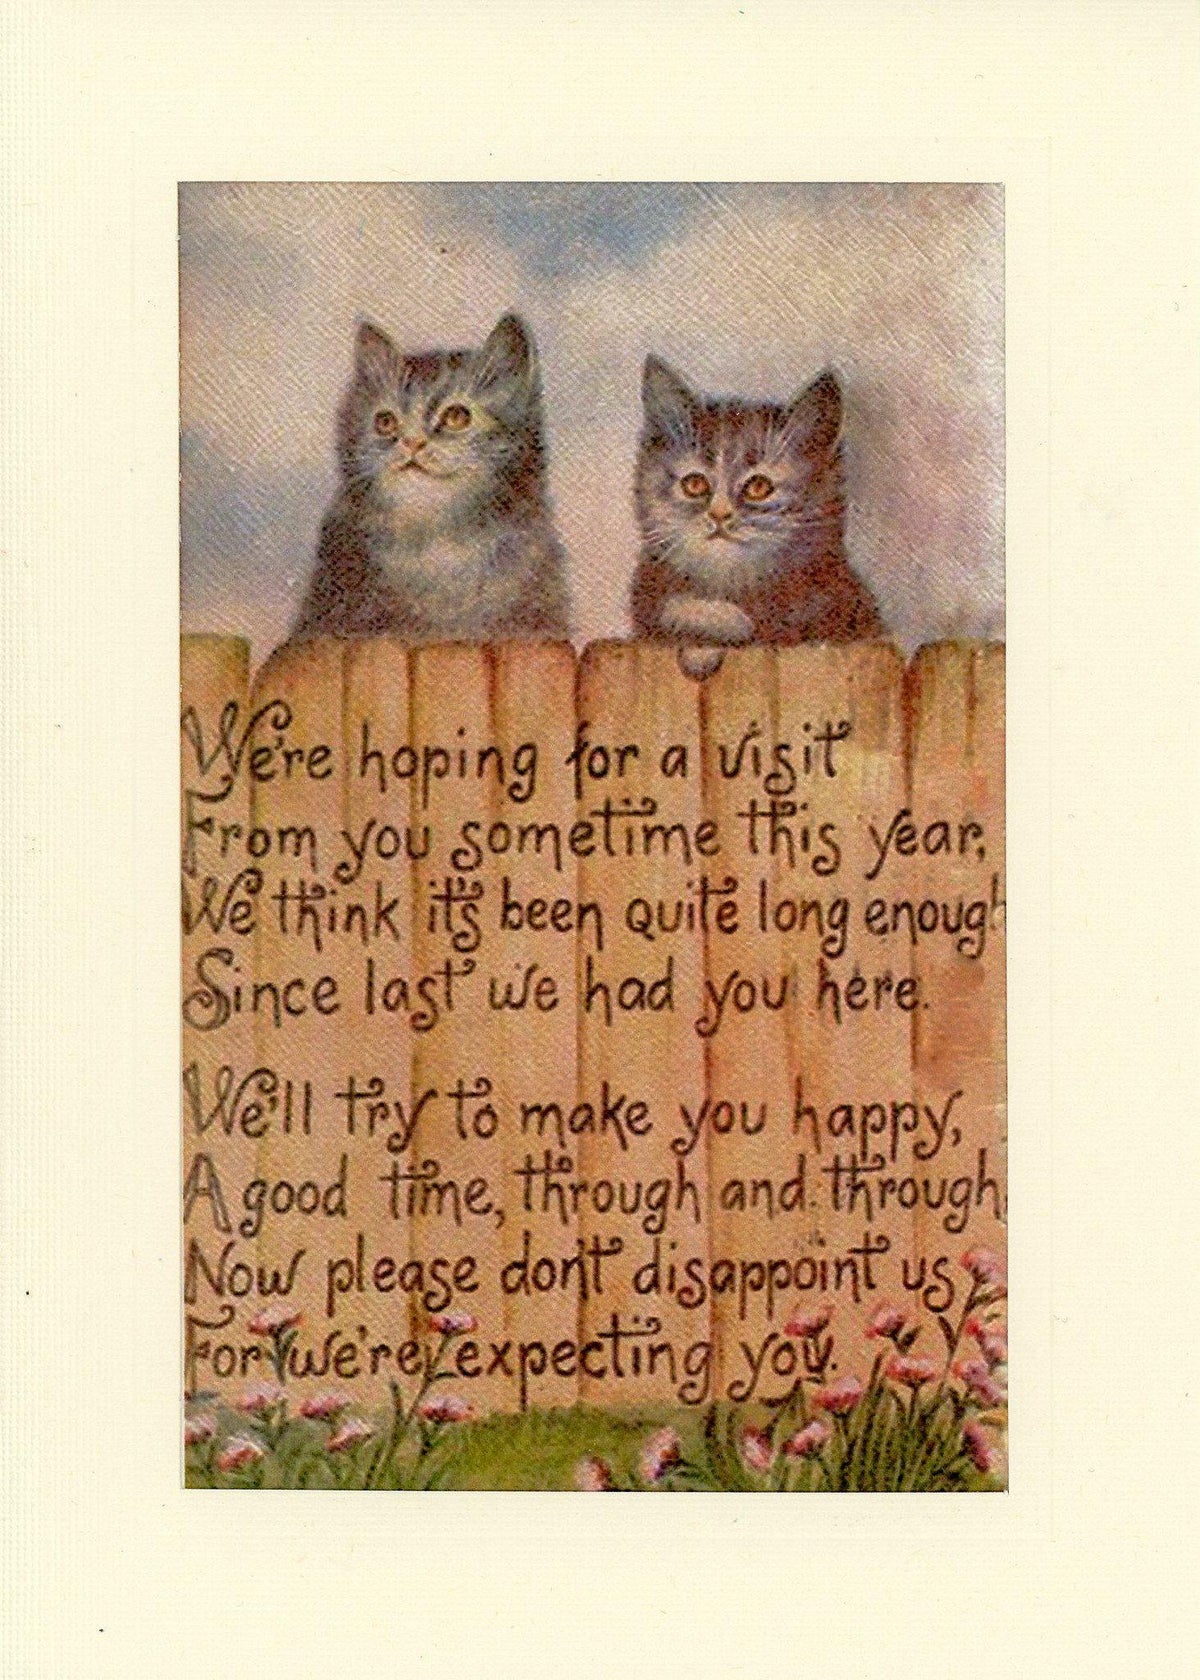 We're hoping for a visit
From you sometime this year,
We think it's been quite long enough
Since last we had you here.
We'll try to make you happy,
A good time, through and through,
Now please don't disappoint us
For we're expecting you.